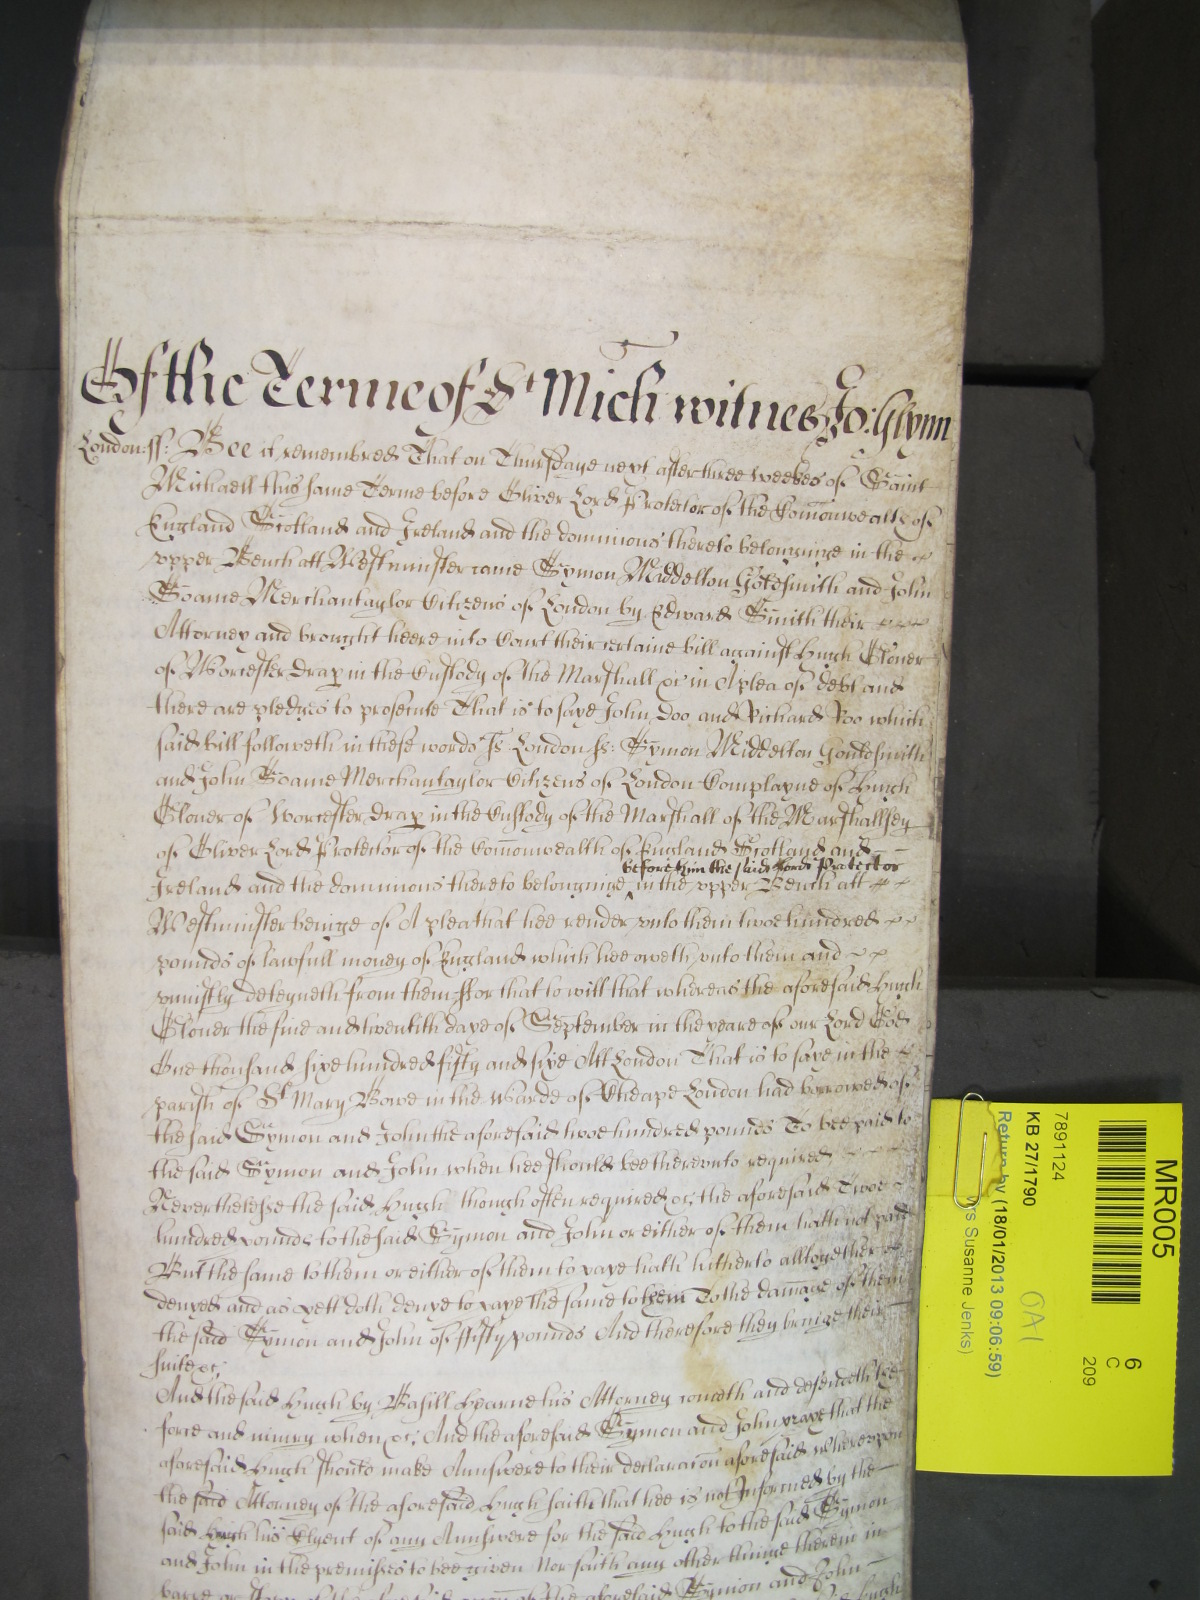 Of the Terme of St Mich witnes Jo: Glynn
London: ss: Bee it remembred That on Thursdaye next after three weekes of Saint
Michaell this same Terme before Oliver Lord Protector of the Comonwealth of
England Scotland and Ireland and the dominions thereto belonginge in the
vpper Bench att Westminster came Symon Middelton Goldsmith and John
Soame Merchantaylor Citizens of London by Edward Smith their
Attorney and brought heere into Court their certaine bill against Hugh Clover
of Worcester drap in the Custody of the Marshall &c in A plea of debt and
there are pledges to prosecute That is to saye John Doo and Richard Roo which
said bill followeth in these words Ss London ss: Symon Middelton Gouldsmith
and John Soame Merchantaylor Citizens of London Complayne of Hugh
Clover of Worcester drap in the Custody of the Marshall of the Marshallsey
of Oliver Lord Protector of the Comonwealth of England Scotland and
before him the said Lord Protector
Ireland and the dominions thereto belonginge in the vpper Bench att
Westminster beinge of A plea that hee render vnto them twoe hundred
pounds of lawfull money of England which hee oweth vnto them and
vniustly deteyneth from them ffor that to witt that whereas the aforesaid Hugh
Clover the five and twentith daye of September in the yeare of our Lord God
One thousand sixe hundred fifty and sixe Att London That is to saye in the
parish of St Mary Bowe in the Warde of Cheape London had borrowed of
the said Symon and John the aforesaid twoe hundred pounds To bee paid to
the said Symon and John when hee should bee therevnto required
Neverthelesse the said Hugh though often required &c: the aforesaid Twoe
hundred pounds to the said Symon and John or either of them hath not paid
But the same to them or either of them to paye hath hitherto alltogether
denyed and as yett doth denye to paye the same to them To the damage of them
the said Symon and John of ffifty pounds And therefore they bringe their
suite &c:
And the said Hugh by Basill Hearne his Attorney cometh and defendeth the
force and iniury when &c: And the aforesaid Symon and John praye that the
aforesaid Hugh should make Annswere to their declaracon aforesaid Wherevpon
the said Attorney of the aforesaid Hugh saith that hee is not Informed by the
said Hugh his Clyent of any Annswere for the said Hugh to the said Symon
and John in the premisses to bee given Nor saith any other thinge therein in
barre or of the aforesaid of the aforesaid Symon and John
MR005
6
C
209
7891124
KB 27/1790
Return by (18/01/2013 09:06:59)
Mrs Susanne Jenks)
OA1